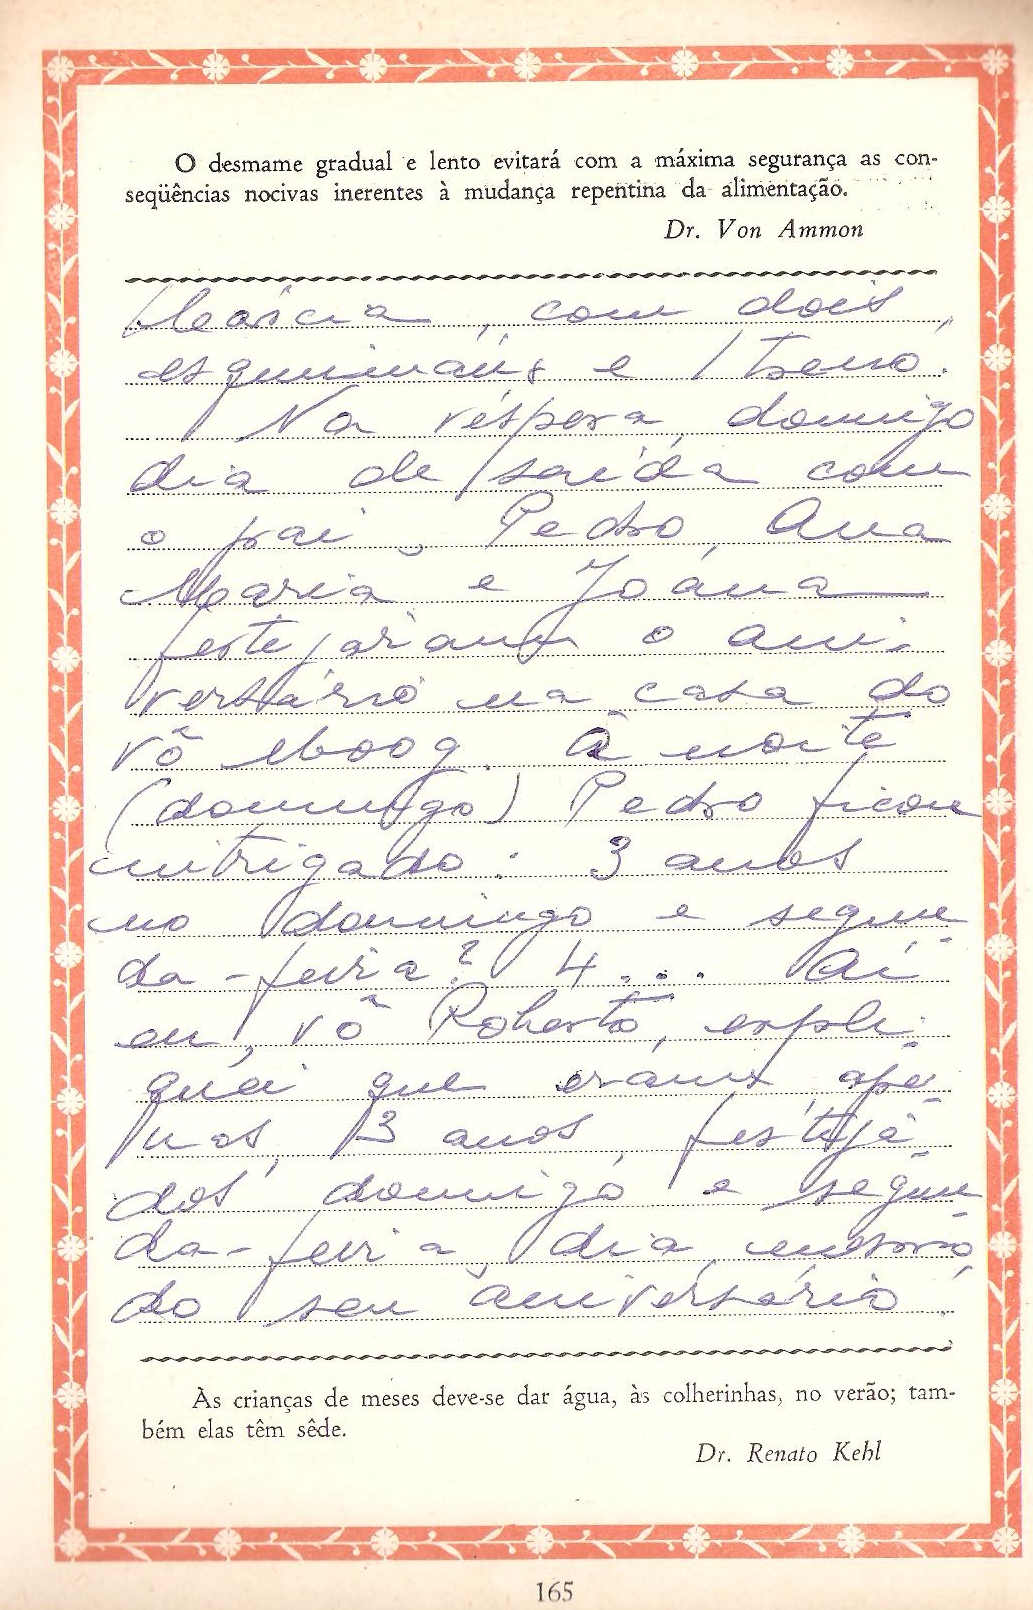 O desmame gradual e lento evitará com a máxima segurança as con-
seqüências nocivas inerentes à mudança repentina da alimentação.
Dr. Von Ammon
Márcia, com dois
esquimáus e 1 treno.
Na véspera, domingo
dia de saída com
o pai, Pedro, Ana
Maria e Joána
festejaram o ani-
versário na casa do
vô Moog. À noite
(domingo) Pedro ficou
intrigado: 3 anos
no domingo e segun-
da-feira? 4... Aí
eu, vô Roberto, expli-
quei que eram ape-
nas 3 anos, festeja-
dos domingo e segun
da-feira, dia mesmo
do seu aniversário.
Às crianças de meses deve-se dar água, às colherinhas, no verão; tam-
bém elas têm sêde.
Dr. Renato Kehl
165